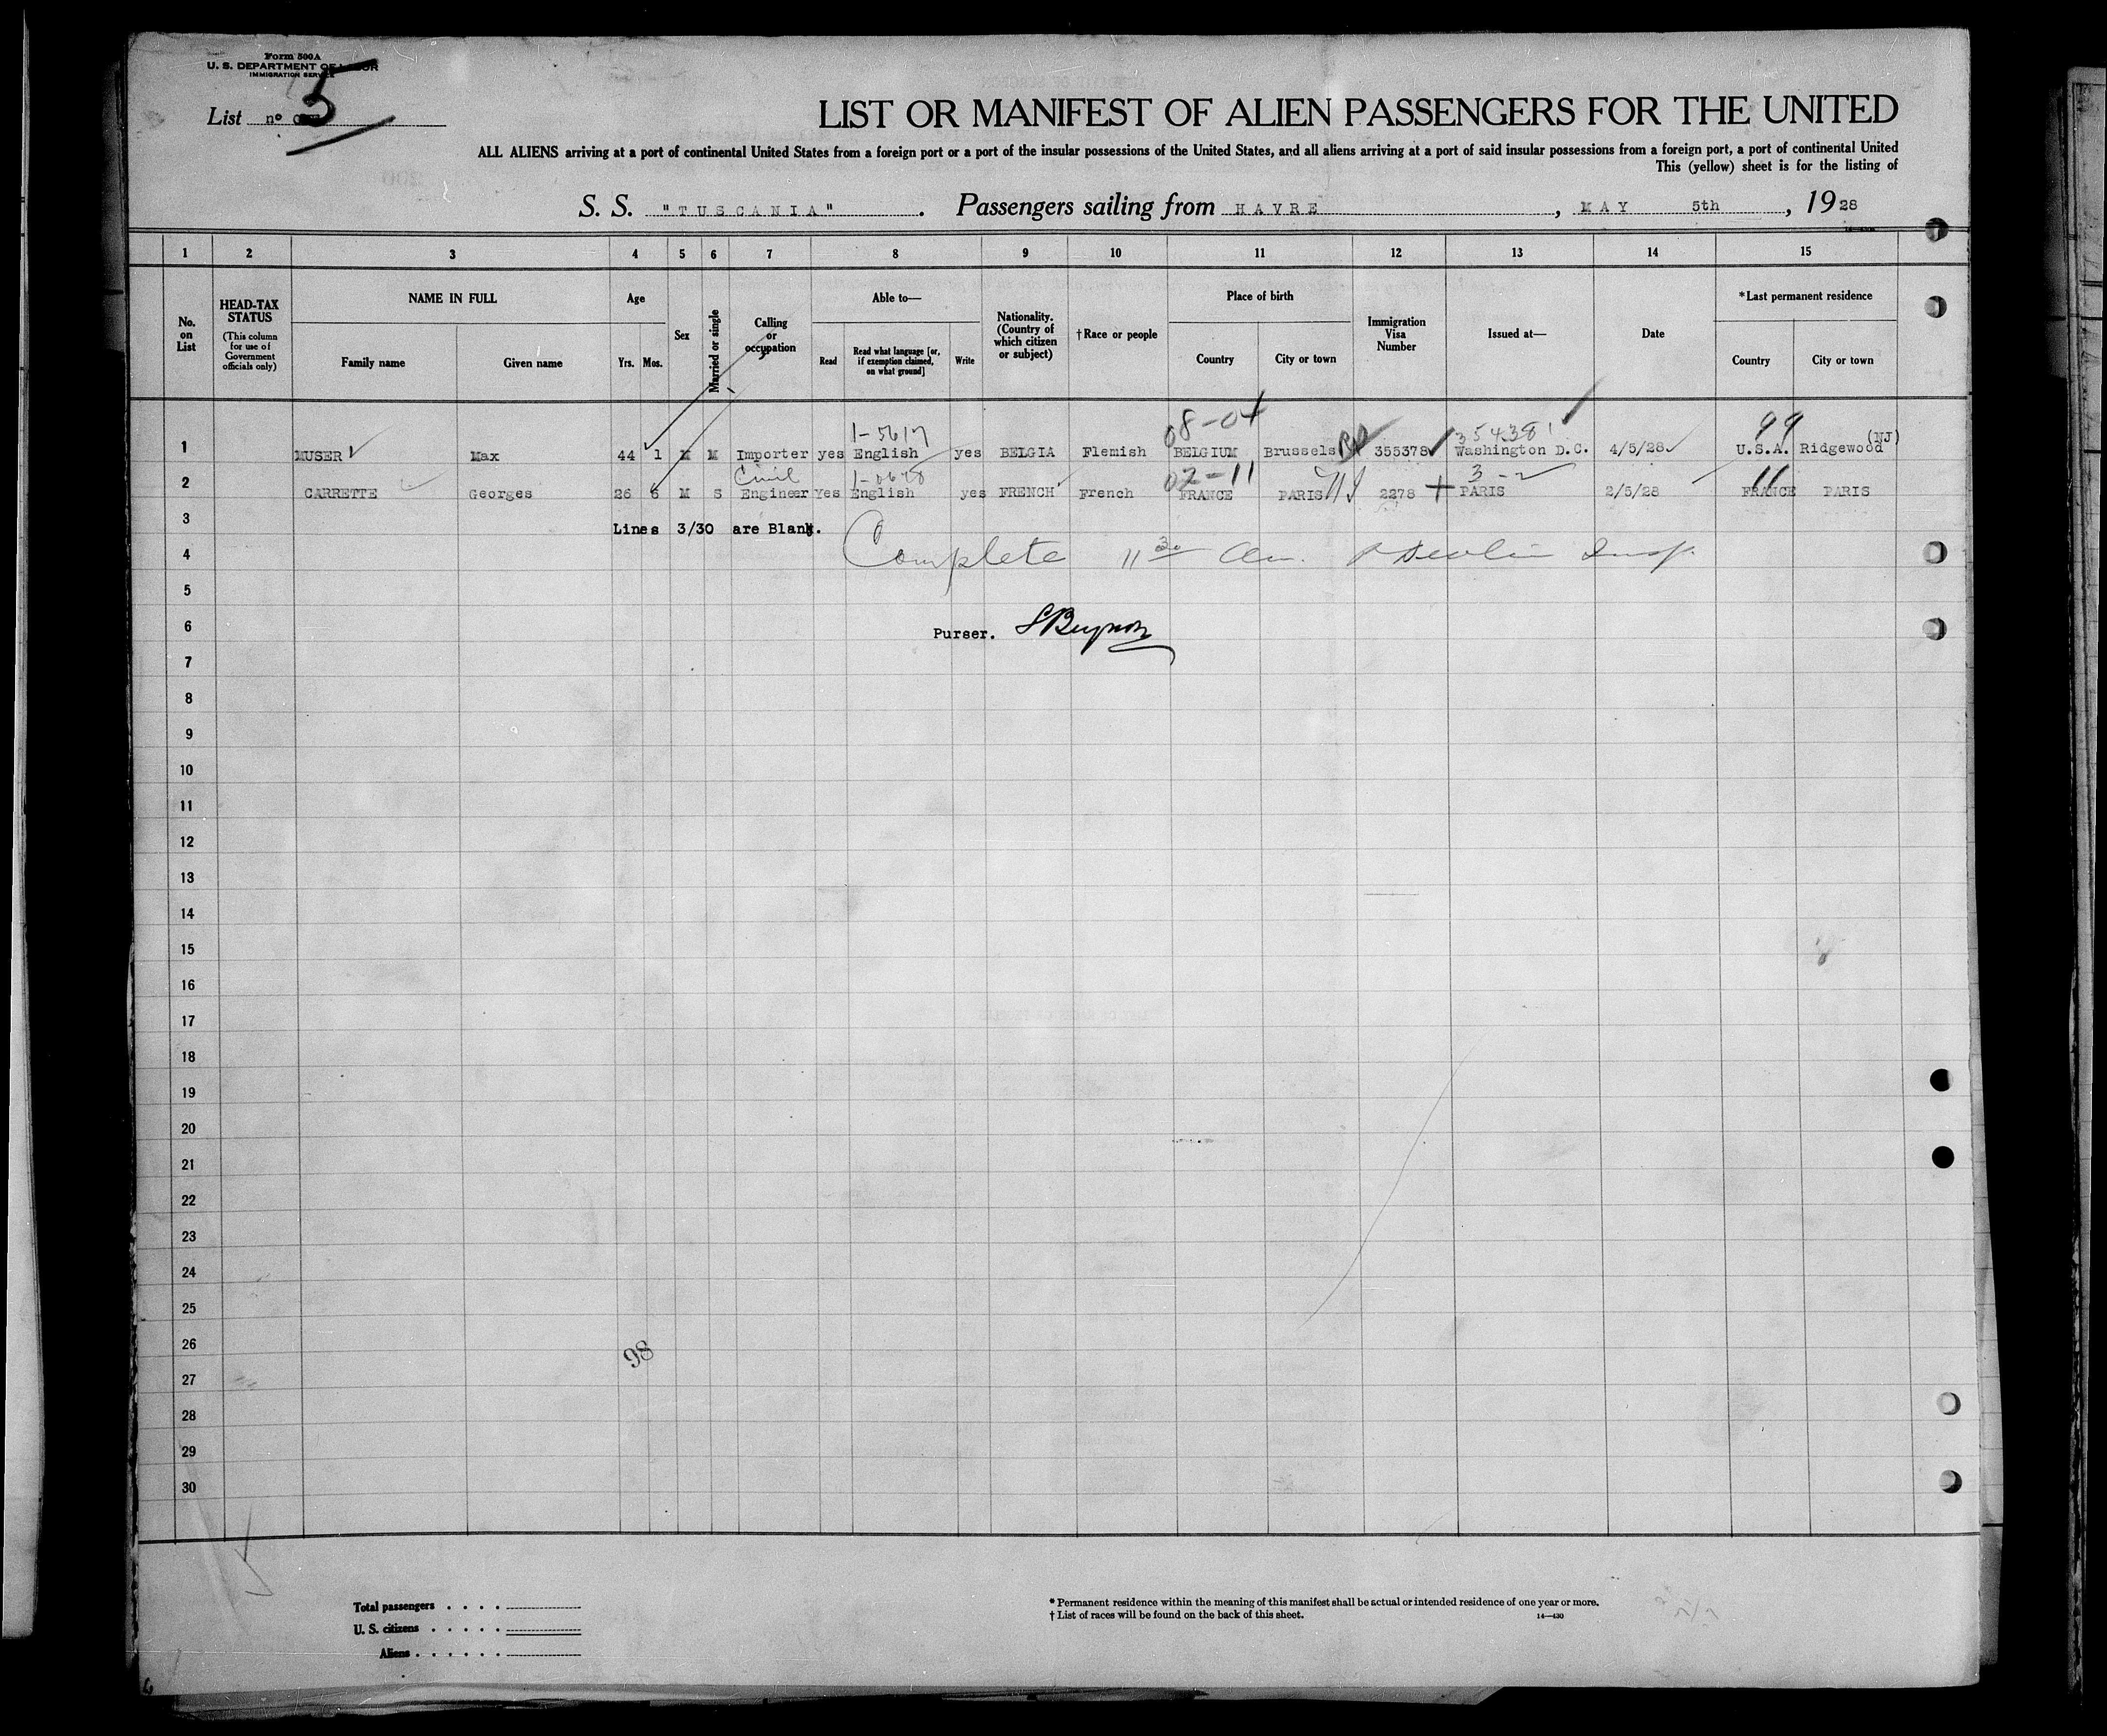 Form 500A
U. S. DEPARTMENT OF LABOR
IMMIGRATION SERVICE
List no 5
LIST OR MANIFEST OF ALIEN PASSENGERS FOR THE UNITED
ALL ALIENS arriving at a port of continental United States from a foreign port or a port of the insular possessions of the United States, and all aliens arriving at a port of said insular possessions from a foreign port, a port of continental United
This (yellow) sheet is for the listing of
S. S. "TUSCANIA". Passengers sailing from HAVRE, MAY 5th, 1928
1 2 3 4 5 6 7 8 9 10 11 12 13 14 15
No. on List
HEAD-TAX STATUS
(This column for use of Government officials only)
NAME IN FULL
Family name
Given name
Age
Yrs. Mos.
Sex
Married or single
Calling or occupation
Able to—
Read
Read what language [or, if exemption claimed, on what ground]
Write
Nationality. (Country of which citizen or subject)
†Race or people
Place of birth
Country
City or town
Immigration Visa Number
Issued at—
Date
*Last permanent residence
Country
City or town
1-5617 08-04 354381 99 (NJ)
1 MUSER Max 44 1 M M Importer yes English yes BELGIA Flemish BELGIUM Brussels 355378 Washington D.C. 4/5/28 U.S.A. Ridgewood
Civil 02-11 3-2 11
2 CARRETTE Georges 26 6 M S Engineer Yes English yes FRENCH French FRANCE PARIS 2278 PARIS 2/5/28 FRANCE PARIS
3 Lines 3/30 are Blank.
4 Complete 11 30 am. Devlin Insp.
5
6 Purser.
7
8
9
10
11
12
13
14
15
16
17
18
19
20
21
22
23
24
25
26
98
27
28
29
30
Total passengers
U. S. citizens
Aliens
* Permanent residence within the meaning of this manifest shall be actual or intended residence of one year or more.
† List of races will be found on the back of this sheet. 14—430